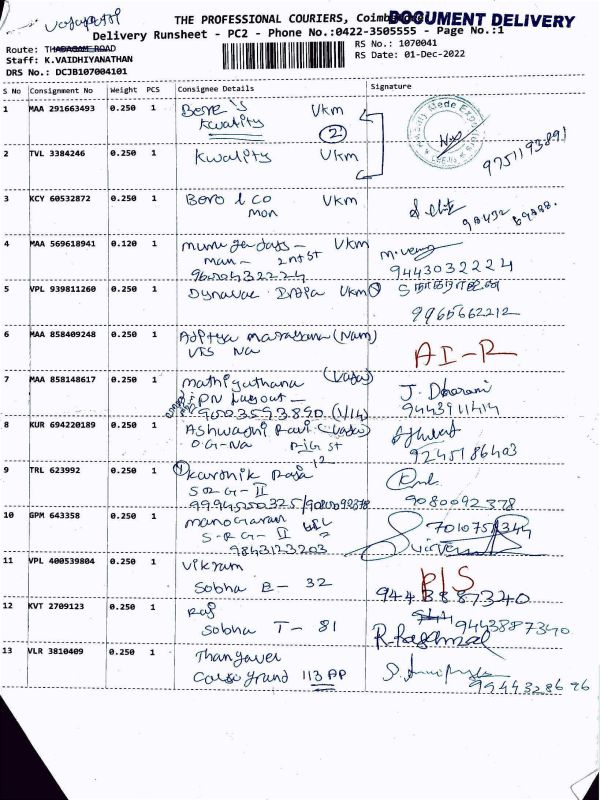 THE PROFESSIONAL COURIERS, Coimbatore
DOCUMENT DELIVERY
Delivery Runsheet - PC2 - Phone No.:0422-3505555 - Page No.:1
Route: THADAGAM ROAD
RS No.: 1070041
Staff: K.VAIDHIYANATHAN
RS Date: 01-Dec-2022
DRS No.: DCJB107004101
S No Consignment No Weight PCS Consignee Details Signature
1 MAA 291663493 0.250 1 Vkm
Kwality
2
2 TVL 3384246 0.250 1 Kwality Vkm
9751193891
3 KCY 60532872 0.250 1 Boro & Co Vkm
mon
4 MAA 569618941 0.120 1 Vkm
2nd st
9600432224
9443032224
5 VPL 939811260 0.250 1 Vkm
9965662212
6 MAA 858409248 0.250 1 Aditya Narayana (Nam)
VTS Na
AI-R
7 MAA 858148617 0.250 1 Mathiyuthana
PN Layout - J. Dharani
9003593890 (V14) 9443911414
8 KUR 694220189 0.250 1 Ashwathi Ravi
O.G-Na
9245186403
9 TRL 623992 0.250 1 Karthik Raja
S R G - II
9080092378
10 GPM 643358 0.250 1 Manogaran
S-R G- II
9843123203
11 VPL 400539804 0.250 1 Vikram P/S
Sobha E - 32 9443887340
12 KVT 2709123 0.250 1 Raj 9443887340
Sobha T - 81
13 VLR 3810409 0.250 1 Thangavel
grand 113 AP
9944328696